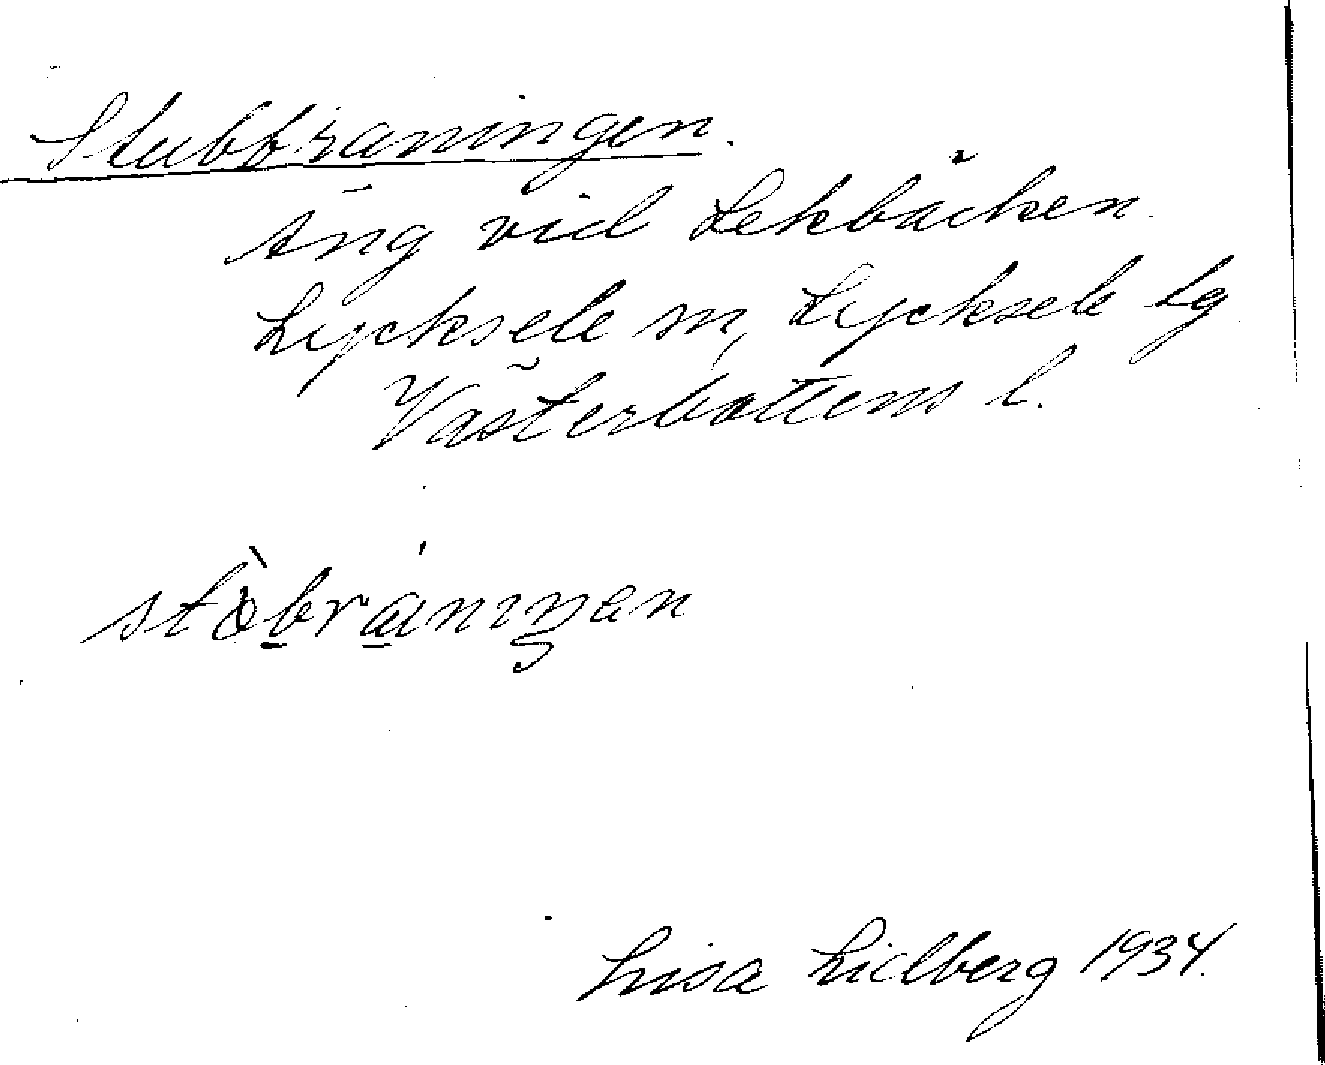 Stubbraningen.
äng vid Lekbäcken.
Lycksele sn, Lycksele lg
Västerbottens l.
stòbra̍niŋen
Lisa Lidberg 1934.